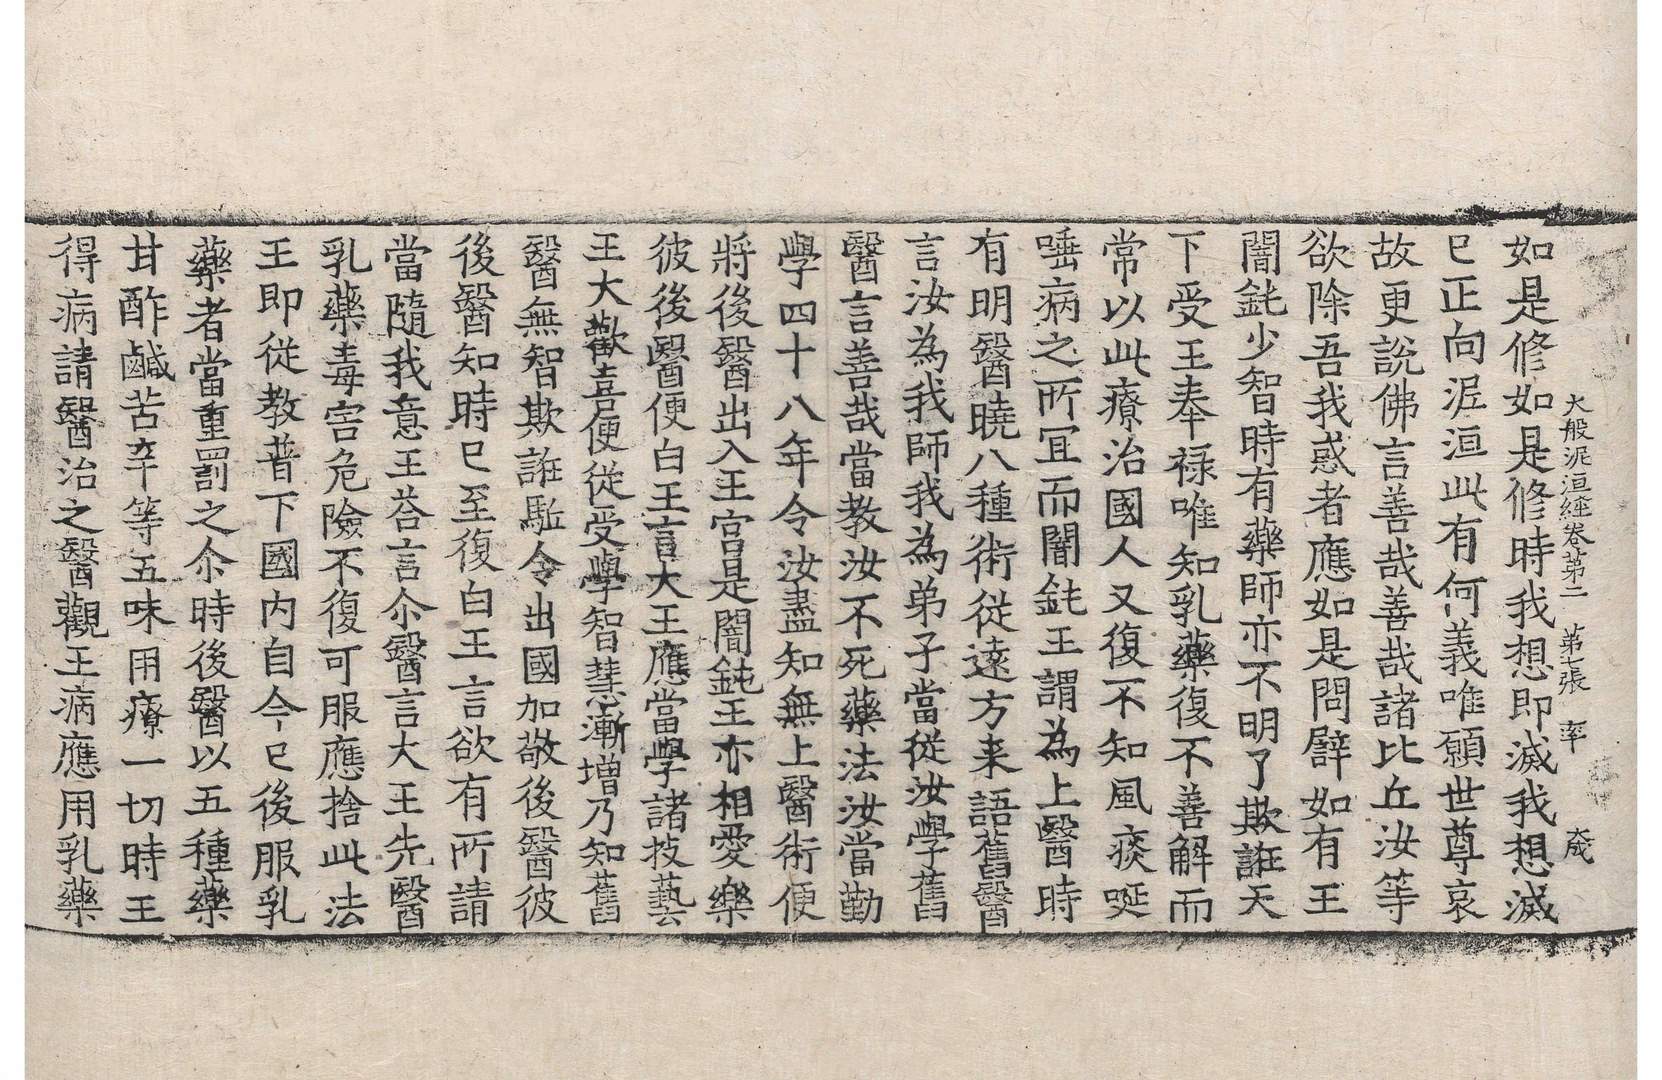 大般泥洹經卷第二　第七張　率　歲
如是修如是修時我想即滅我想滅
已正向泥洹此有何義唯願世尊哀
故更說佛言善哉善哉諸比丘汝等
欲除吾我惑者應如是問譬如有王
闇鈍少智時有藥師亦不明了欺誑天
下受王奉祿唯知乳藥復不善解而
常以此療治國人又復不知風痰唌
唾病之所冝而闇鈍王謂為上醫時
有明醫曉八種術從遠方来語舊醫
言汝為我師我為弟子當從汝學舊
醫言善哉當教汝不死藥法汝當勤
學四十八年令汝盡知無上醫術便
將後醫出入王宮是闇鈍王亦相愛樂
彼後醫便白王言大王應當學諸技藝
王大歡喜便從受學智慧漸增乃知舊
醫無智欺誑駈令出國加敬後醫彼
後醫知時已至復白王言欲有所請
當隨我意王荅言尒醫言大王先醫
乳藥毒害危險不復可服應捨此法
王即從教普下國內自今已後服乳
藥者當重罰之尒時後醫以五種藥
甘酢鹹苦辛等五味用療一切時王
得病請醫治之醫觀王病應用乳藥